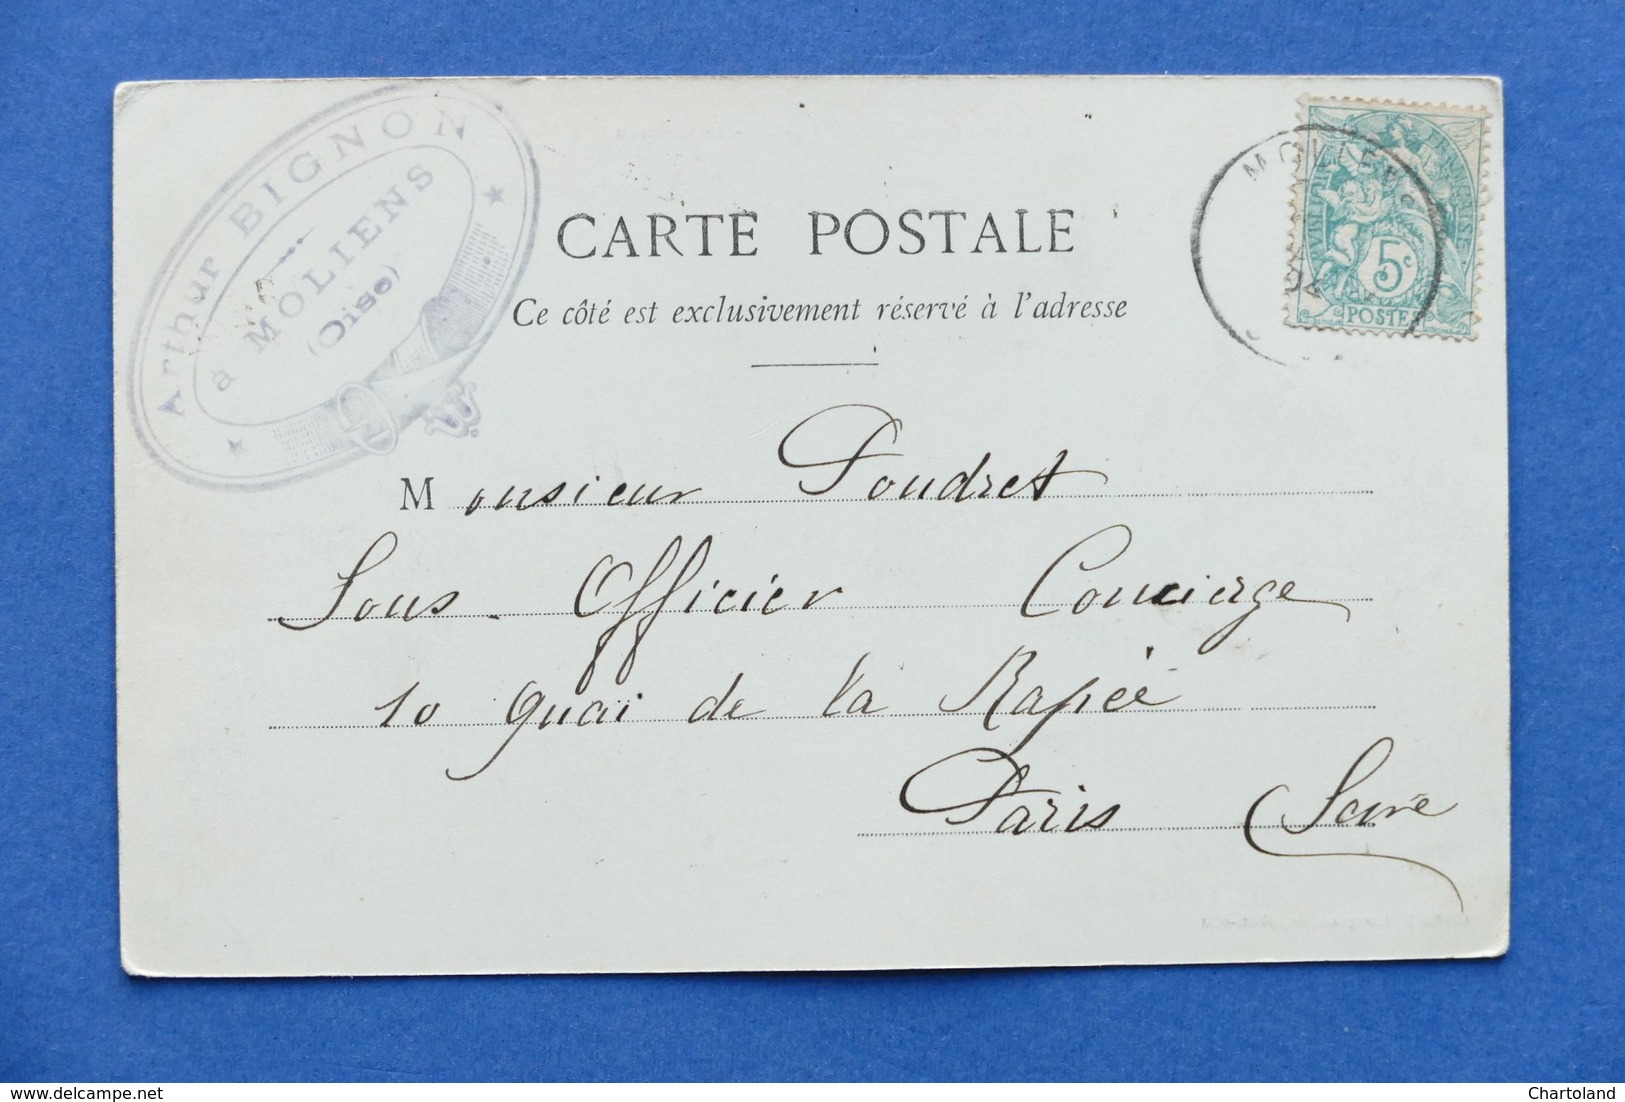 Arthur BIGNON
à MOLIENS
(Oise)
CARTE POSTALE
Ce côté est exclusivement réservé à l'adresse
RÉPUBLIQUE FRANÇAISE
5c
POSTES
Monsieur Poudret
Sous Officier Concierge
10 quai de la Rapée
Paris (Seine
Chartoland